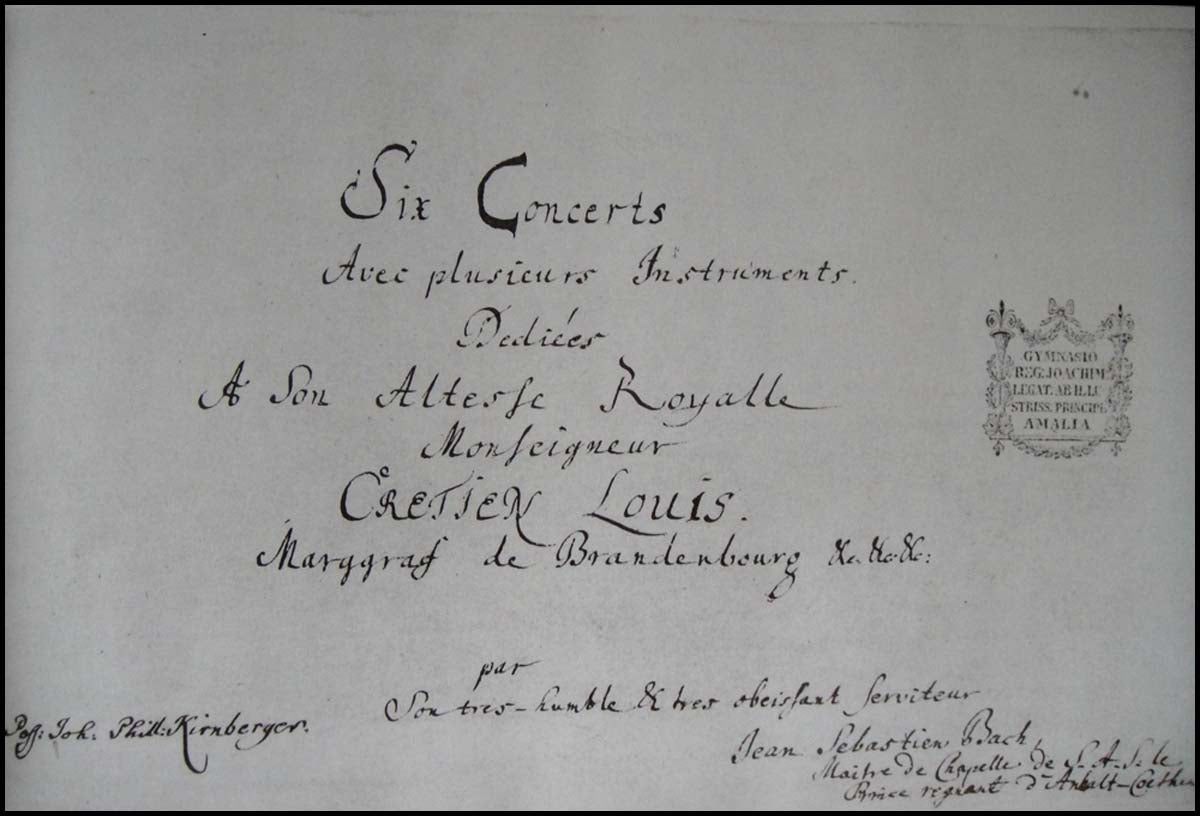 Six Concerts
Avec plusieurs Instruments.
Dediées
A Son Altesse Royalle
Monseigneur
CRETIEN LOUIS.
Marggraf de Brandenbourg &c. &c. &c:
par
Son tres-humble & tres obeissant serviteur
Jean Sebastien Bach,
Maître de Chapelle de S. A. S. le
Prince regnant d'Anhalt-Coethen
Poss: Joh. Phill: Kirnberger.
GYMNASIO
REG. JOACHIM
LEGAT. AB ILLU
STRISS. PRINCIPE
AMALIA